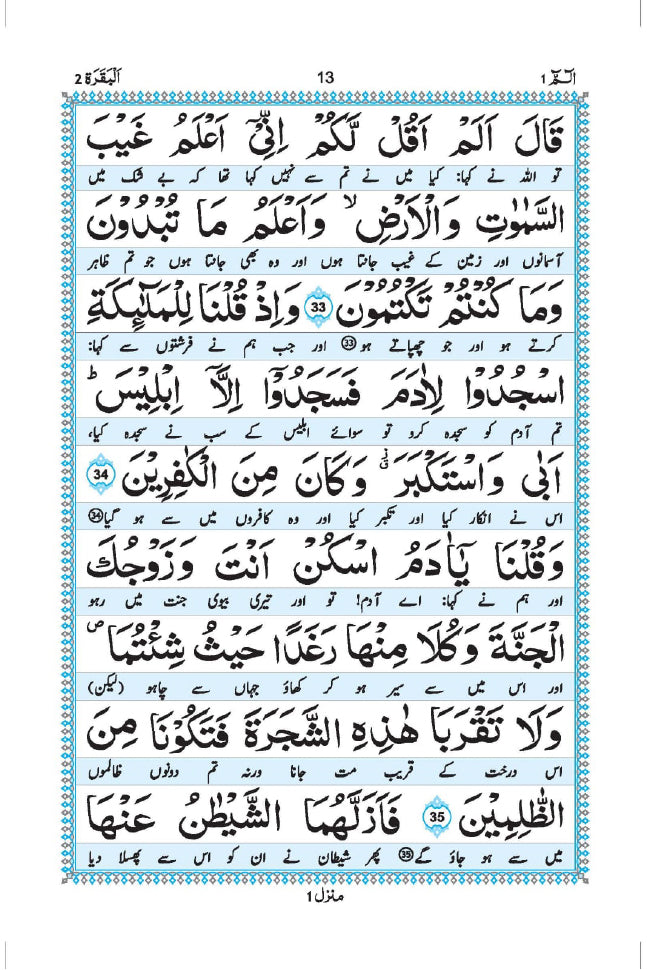 الٓمّٓ 1 13 اَلْبَقَرَة 2
قَالَ اَلَمْ اَقُلْ لَّكُمْ اِنِّيْٓ اَعْلَمُ غَيْبَ
تو اللہ نے کہا: کیا میں نے تم سے نہیں کہا تھا کہ بے شک میں
السَّمٰوٰتِ وَالْاَرْضِ ۙ وَاَعْلَمُ مَا تُبْدُوْنَ
آسمانوں اور زمین کے غیب جانتا ہوں اور وہ بھی جانتا ہوں جو تم ظاہر
وَمَا كُنْتُمْ تَكْتُمُوْنَ 33 وَاِذْ قُلْنَا لِلْمَلٰٓئِكَةِ
کرتے ہو اور جو چھپاتے ہو 33 اور جب ہم نے فرشتوں سے کہا:
اسْجُدُوْا لِاٰدَمَ فَسَجَدُوْٓا اِلَّآ اِبْلِيْسَ ؕ
تم آدم کو سجدہ کرو تو سوائے ابلیس کے سب نے سجدہ کیا،
اَبٰى وَاسْتَكْبَرَ ۫ۗ وَكَانَ مِنَ الْكٰفِرِيْنَ 34
اس نے انکار کیا اور تکبر کیا اور وہ کافروں میں سے ہو گیا 34
وَقُلْنَا يٰٓاٰدَمُ اسْكُنْ اَنْتَ وَزَوْجُكَ
اور ہم نے کہا: اے آدم! تو اور تیری بیوی جنت میں رہو
الْجَنَّةَ وَكُلَا مِنْهَا رَغَدًا حَيْثُ شِئْتُمَا ۪
اور اس میں سے سیر ہو کر کھاؤ جہاں سے چاہو (لیکن)
وَلَا تَقْرَبَا هٰذِهِ الشَّجَرَةَ فَتَكُوْنَا مِنَ
اس درخت کے قریب مت جانا ورنہ تم دونوں ظالموں
الظّٰلِمِيْنَ 35 فَاَزَلَّهُمَا الشَّيْطٰنُ عَنْهَا
میں سے ہو جاؤ گے 35 پھر شیطان نے ان کو اس سے پھسلا دیا
منزل 1